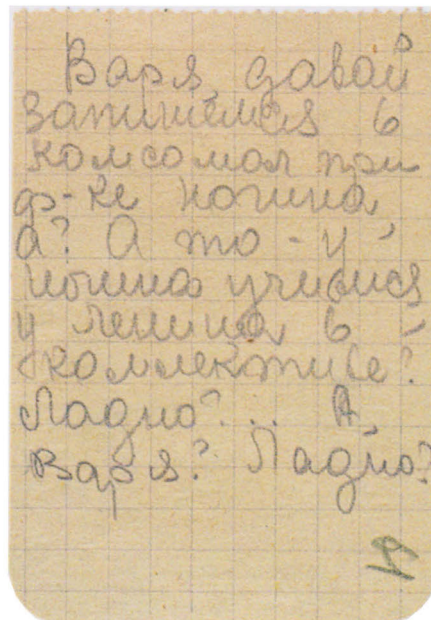 Варя, давай
запишемся в
комсомол при
ф-ке Ногина
а? А то - у
Ногина учимся
у Ленина в
коллективе?
Ладно?.. А,
Варя? Ладно?